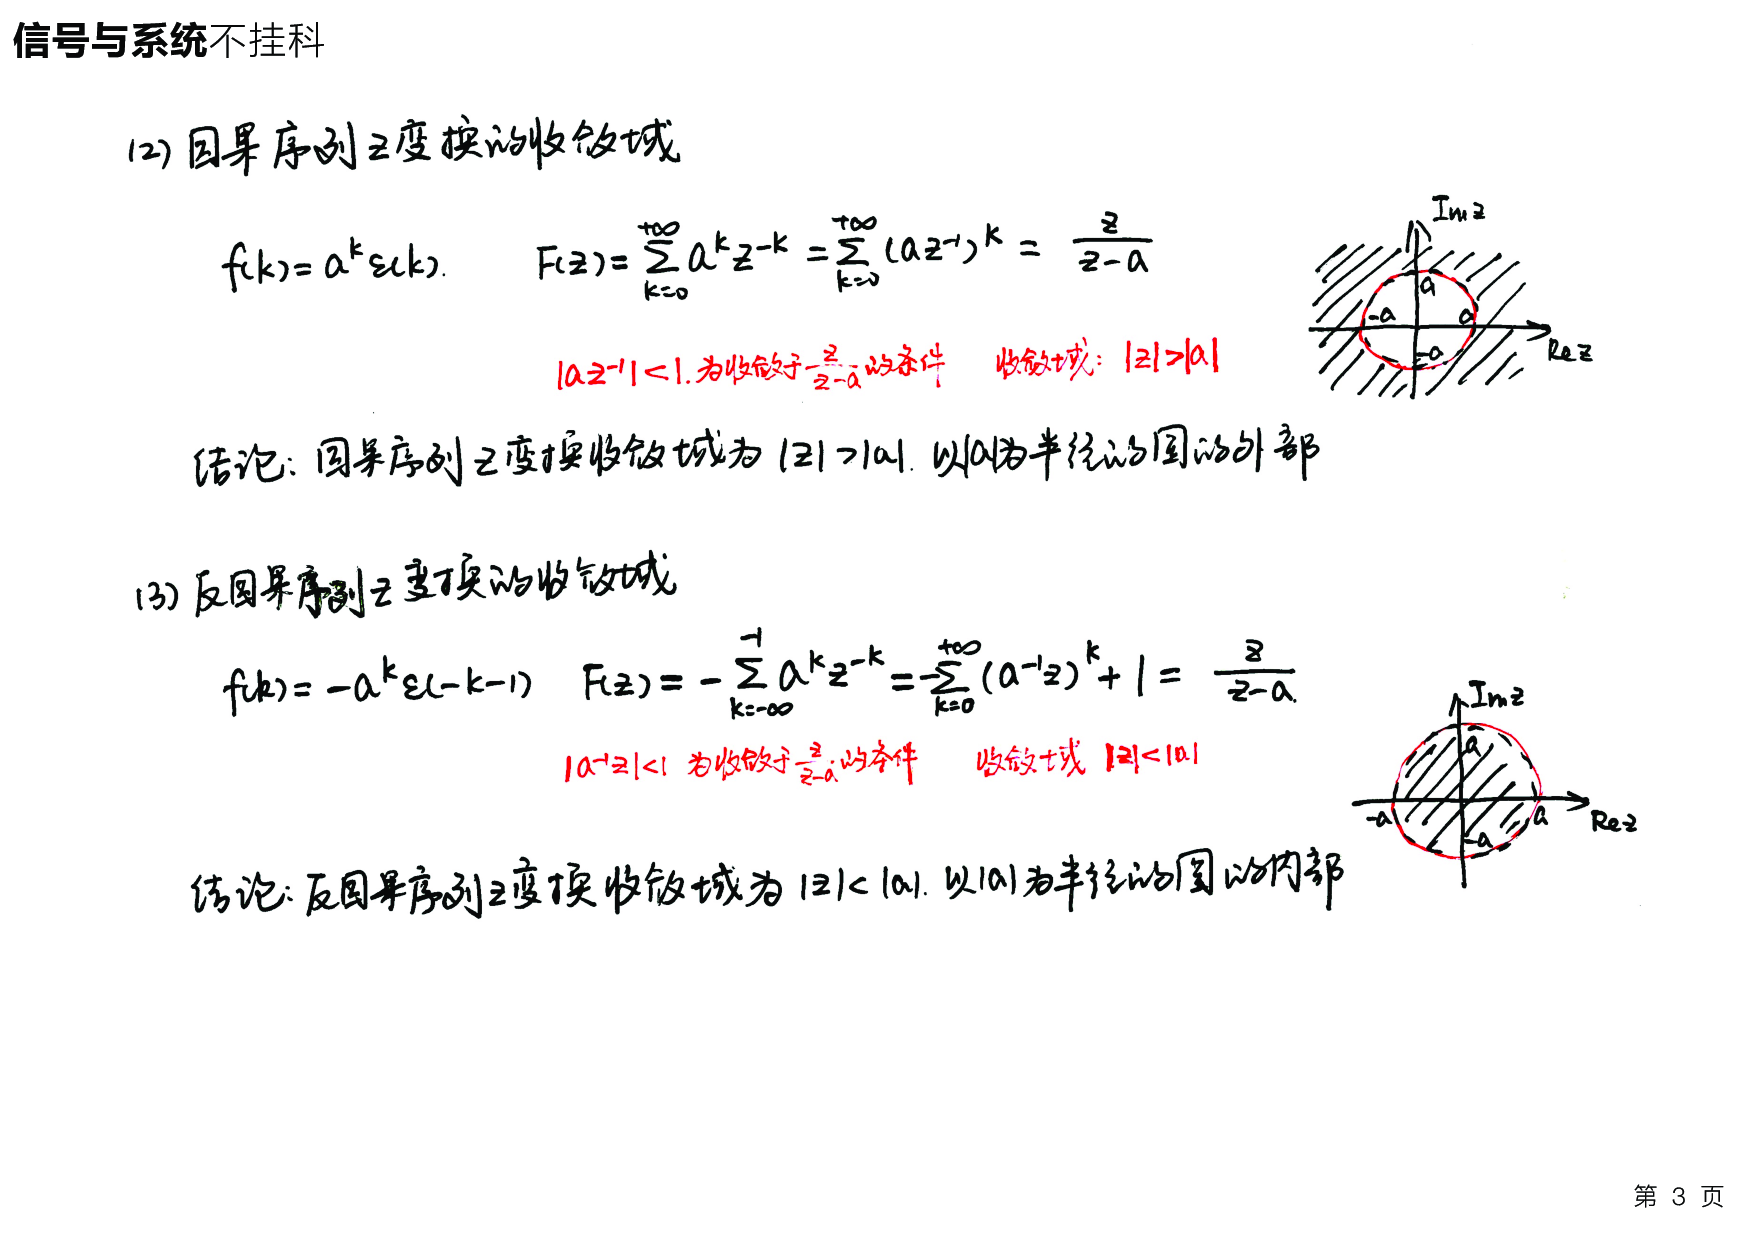 信号与系统不挂科
(2) 因果序列z变换的收敛域
f(k)=a^k ε(k). F(z)=∑_{k=0}^{+∞} a^k z^{-k} = ∑_{k=0}^{+∞} (az^{-1})^k = z/(z-a)
Imz
a
-a
a
-a
Rez
|az^{-1}|<1. 为收敛于 z/(z-a) 的条件 收敛域: |z|>|a|
结论: 因果序列z变换收敛域为 |z|>|a|. 以|a|为半径的圆的外部
(3) 反因果序列z变换的收敛域
f(k)=-a^k ε(-k-1) F(z)=-∑_{k=-∞}^{-1} a^k z^{-k} = -∑_{k=0}^{+∞} (a^{-1}z)^k + 1 = z/(z-a).
Imz
a
-a
a
-a
Rez
|a^{-1}z|<1 为收敛于 z/(z-a) 的条件 收敛域 |z|<|a|
结论: 反因果序列z变换收敛域为 |z|<|a|. 以|a|为半径的圆的内部
第 3 页